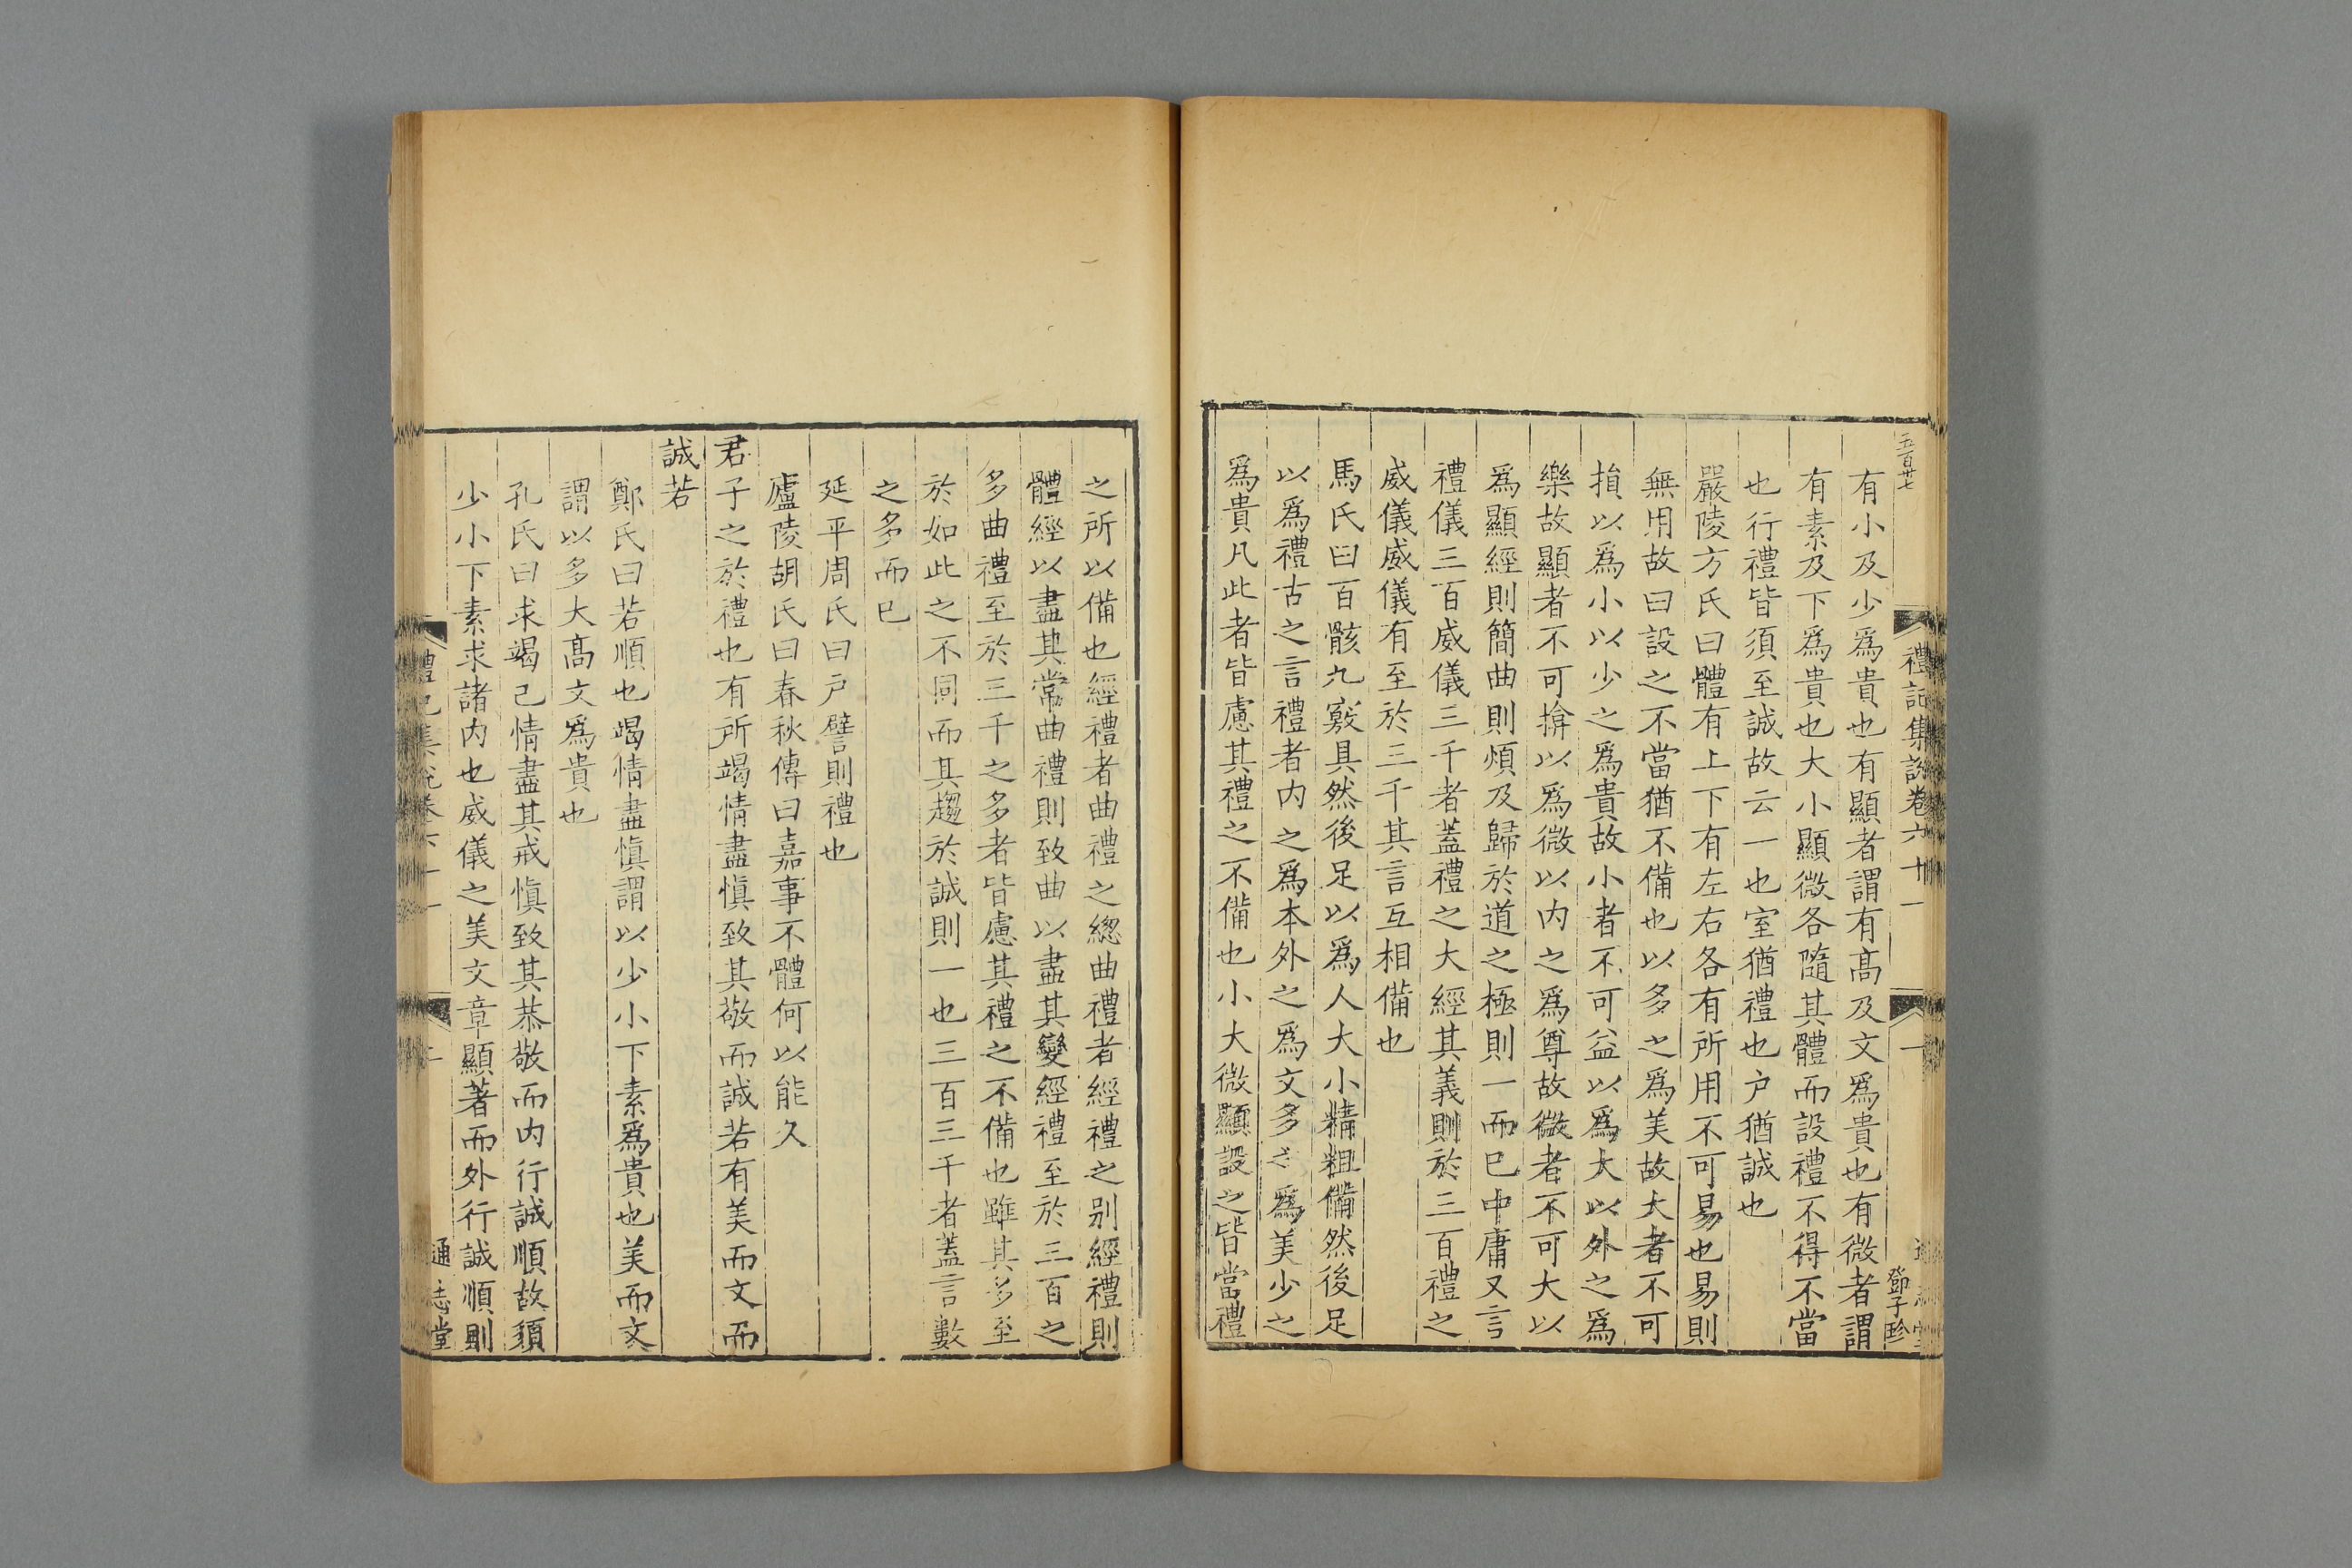 五百卅七
禮記集說卷六十一
一
鄧子珍
有小及少爲貴也有顯者謂有髙及文爲貴也有微者謂
有素及下爲貴也大小顯微各隨其體而設禮不得不當
也行禮皆須至誠故云一也室猶禮也户猶誠也
嚴陵方氏曰體有上下有左右各有所用不可易也易則
無用故曰設之不當猶不備也以多之爲美故大者不可
損以爲小以少之爲貴故小者不可益以爲大以外之爲
樂故顯者不可揜以爲微以内之爲尊故微者不可大以
爲顯經則簡曲則煩及歸於道之極則一而已中庸又言
禮儀三百威儀三千者蓋禮之大經其義則於三百禮之
威儀威儀有至於三千其言互相備也
馬氏曰百骸九竅具然後足以爲人大小精粗備然後足
以爲禮古之言禮者内之爲本外之爲文多之爲美少之
爲貴凡此者皆慮其禮之不備也小大微顯設之皆當禮
之所以備也經禮者曲禮之緫曲禮者經禮之别經禮則
體經以盡其常曲禮則致曲以盡其變經禮至於三百之
多曲禮至於三千之多者皆慮其禮之不備也雖其多至
於如此之不同而其趨於誠則一也三百三千者蓋言數
之多而已
延平周氏曰户譬則禮也
廬陵胡氏曰春秋傳曰嘉事不體何以能久
君子之於禮也有所竭情盡愼致其敬而誠若有美而文而
誠若
鄭氏曰若順也竭情盡愼謂以少小下素爲貴也美而文
謂以多大髙文爲貴也
孔氏曰求竭己情盡其戒愼致其恭敬而内行誠順故須
少小下素求諸内也威儀之美文章顯著而外行誠順則
禮記集說卷六十一
二
通志堂